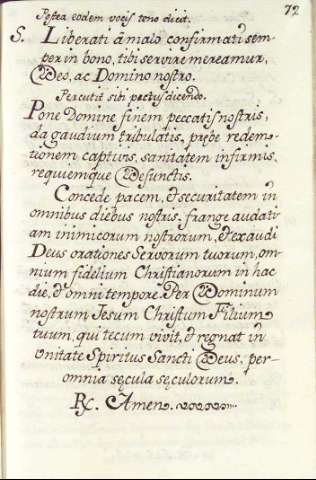 72
Postea eodem vocis tono dicit.
S. Liberati á malo confirmati sem-
per in bono, tibi servire mereamur,
Deo, ac Domino nostro.
Percutit sibi pectus dicendo.
Pone Domine finem peccatis nostris,
da gaudium tribulatis, prębe redem-
tionem captivis, sanitatem infirmis,
requiemque Defunctis.
Concede pacem, & securitatem in
omnibus diebus nostris. frange audati-
am inimicorum nostrorum, & exaudi
Deus orationes Servorum tuorum, om-
nium fidelium Christianorum in hac
die, & omni tempore. Per Dominum
nostrum Jesum Christum Filium
tuum, qui tecum vivit, & regnat in
Unitate Spiritus Sancti Deus, per-
omnia sęcula sęculorum.
℟. Amen.